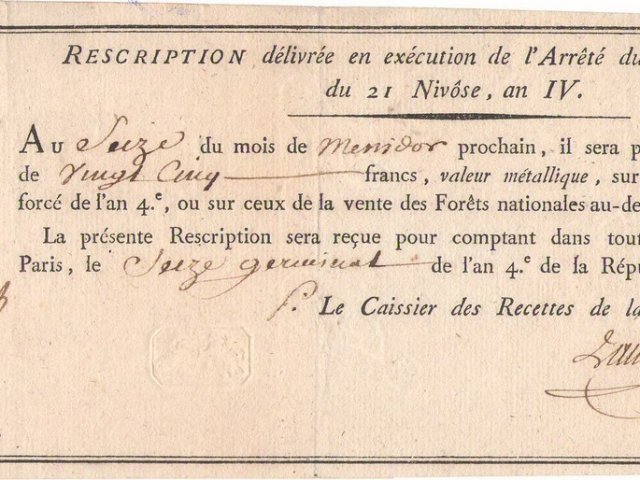 RESCRIPTION délivrée en exécution de l'Arrêté du
du 21 Nivôse, an IV.
AU Seize du mois de Messidor prochain, il sera p
de Vingt Cinq francs, valeur métallique, sur
forcé de l'an 4.e, ou sur ceux de la vente des Forêts nationales au-de
La présente Rescription sera reçue pour comptant dans tout
Paris, le Seize germinal de l'an 4.e de la Répu
P. Le Caissier des Recettes de la